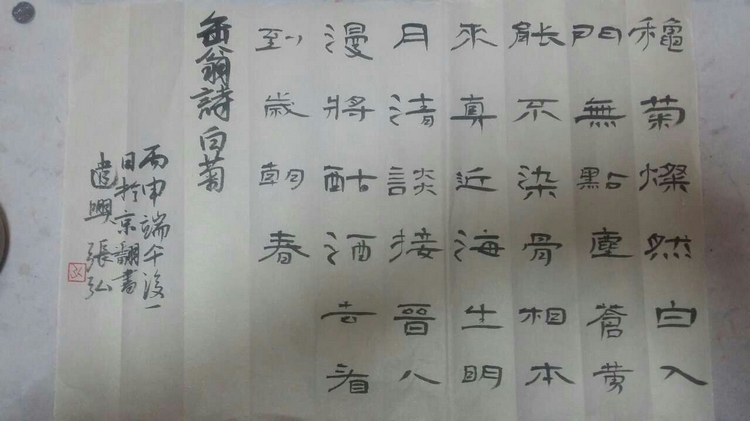 穐菊燦然白入
門無點塵蒼黄
能不染骨相本
來真近海生明
月清談接晉人
漫將酤酒去看
到歲朝春
缶翁詩白菊
丙申端午後一
日於京翻書
遣興張弘